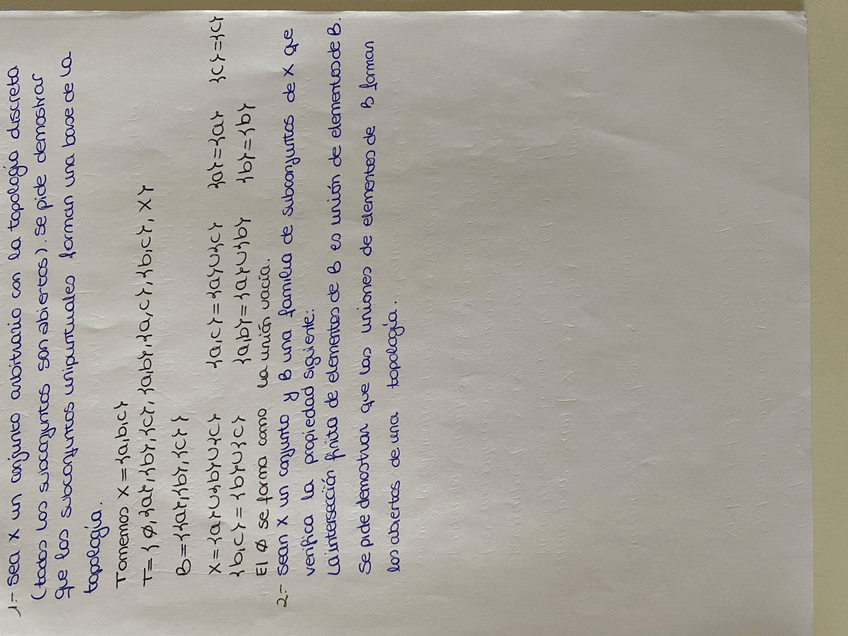 1.- Sea X un conjunto arbitrario con la topología discreta
(todos los subconjuntos son abiertos). Se pide demostrar
que los subconjuntos unipuntuales forman una base de la
topología.
Tomemos X={a,b,c}
T={∅,{a},{b},{c},{a,b},{a,c},{b,c},X}
B={{a},{b},{c}}
X={a}∪{b}∪{c} {a,c}={a}∪{c} {a}={a} {c}={c}
{b,c}={b}∪{c} {a,b}={a}∪{b} {b}={b}
El ∅ se forma como la unión vacía.
2.- Sean X un conjunto y B una familia de subconjuntos de X que
verifica la propiedad siguiente:
La intersección finita de elementos de B es unión de elementos de B.
Se pide demostrar que las uniones de elementos de B forman
los abiertos de una topología.